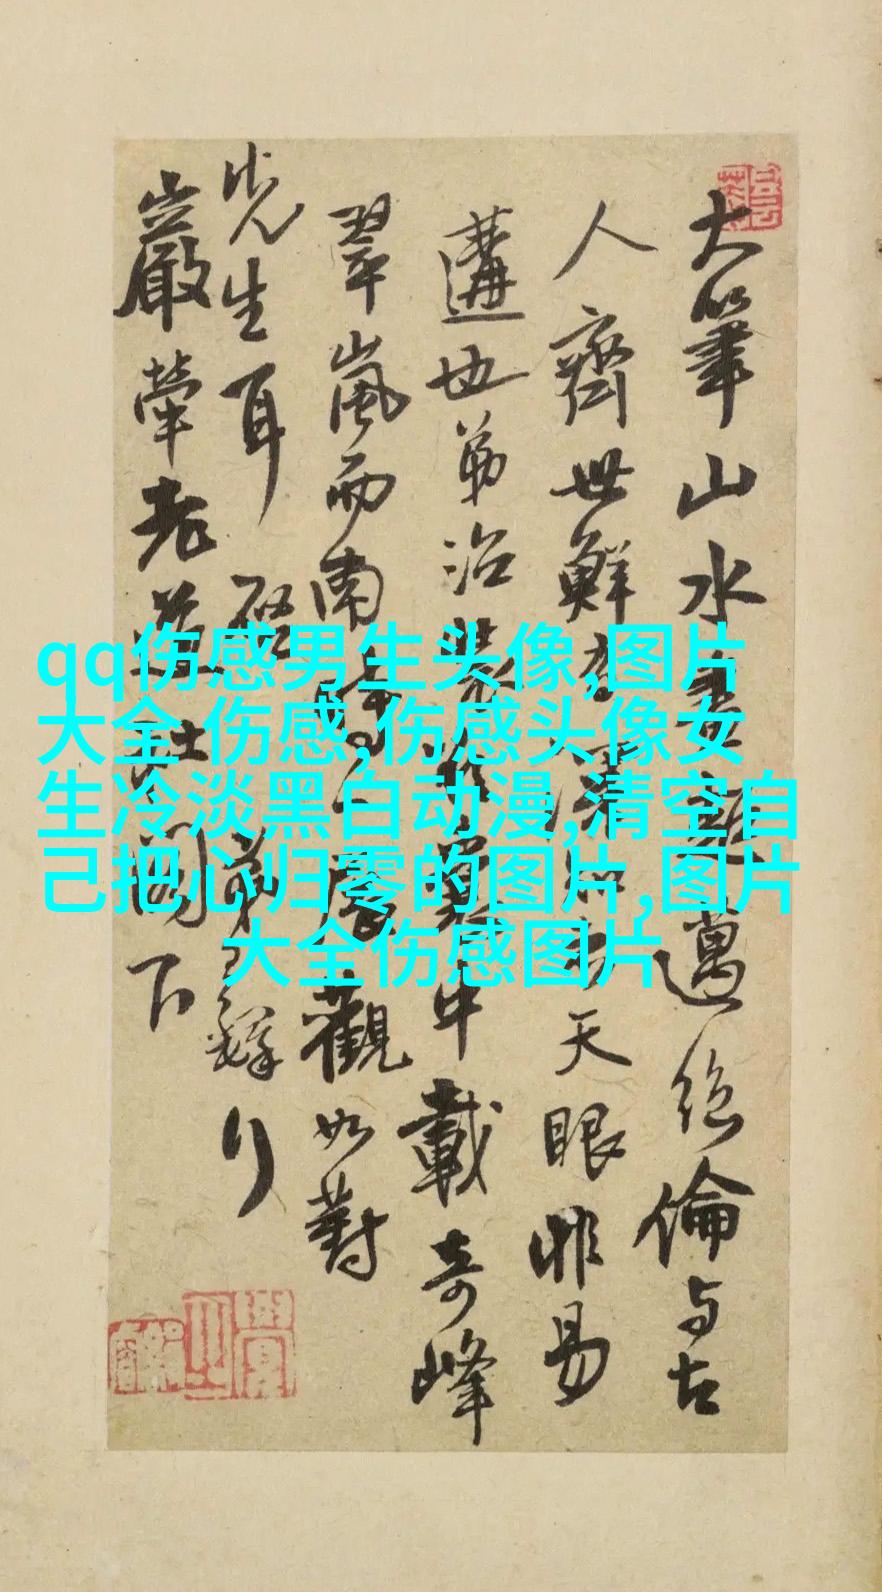 大筆山水邁絕倫与古
人齊世鮮天眼非易
遘也弟治裝中載奇峰
翠嵐而南時一展觀如對
先生耳 弟
嚴犖老道社閣下
qq伤感男生头像,图片
大全 伤感,伤感头像女
生冷淡黑白动漫,清空自
己把心归零的图片,图片
大全伤感图片